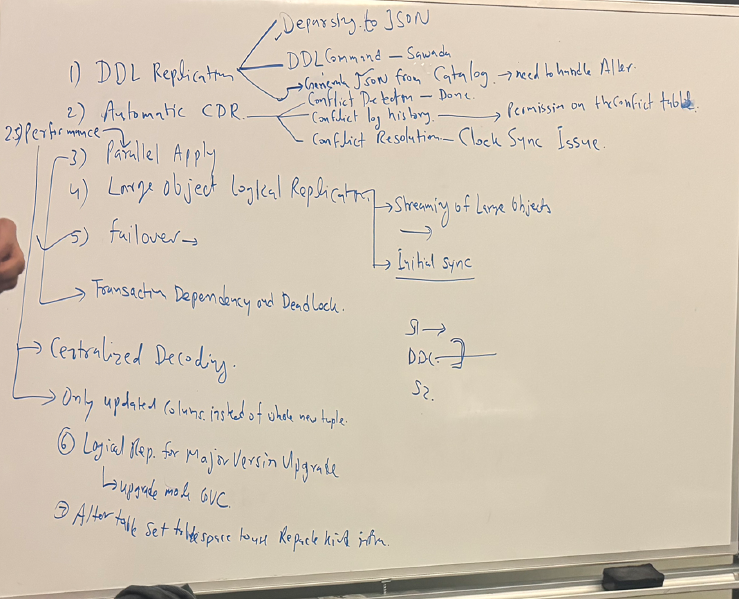 Deparsing to JSON
1) DDL Replication
DDL Command - Sawada
Generate JSON from Catalog. → need to handle Alter.
2) Automatic CDR
Conflict Detection - Done.
Conflict log history. → Permission on the Conflict table.
Conflict Resolution - Clock Sync Issue.
25) Performance
3) Parallel Apply
4) Large Object Logical Replication
→ Streaming of Large Objects
→ Initial Sync
5) failover →
→ Transaction Dependency and Deadlock.
S1 →
DDL
S2.
→ Centralized Decoding.
→ Only updated colums instead of whole new tuple.
⑥ Logical Rep. for Major Versin Upgrade
↳ upgrade mode GUC.
⑦ Alter table Set tablespace to use Repack kind infra.